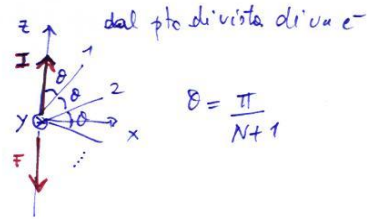 dal pto di vista di un e⁻
z
I
1
θ
θ
2
θ
y
x
F
...
θ = π / N+1